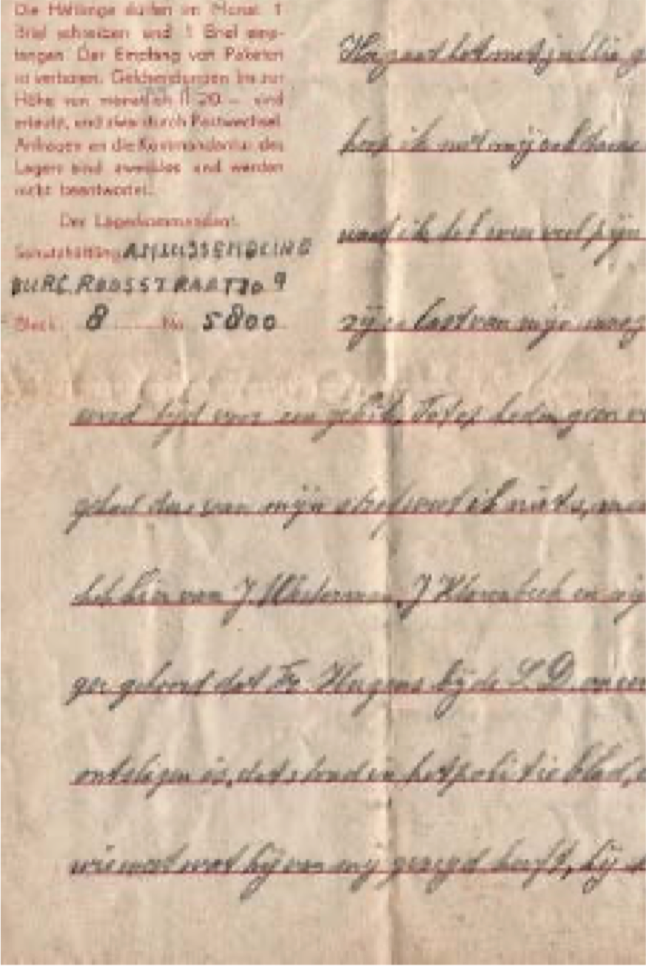 Die Häftlinge dürfen im Monat 1
Brief schreiben und 1 Brief emp-
fangen. Der Empfang von Paketen
ist verboten. Geldsendungen bis zur
Höhe von monatlich fl 20.— sind
erlaubt, und zwar durch Postwechsel.
Anfragen an die Kommandantur des
Lagers sind zwecklos und werden
nicht beantwortet.
Der Lagerkommandant.
Schutzhäftling
BURG. ROOSSTRAAT 9
Block: 8 No 5800
Hoe gaat het met jullie
hoop ik met mij ook
want ik heb veel pijn
last van mijn
tijd voor een gebit. Tot heden geen
van mijn straf weet ik niets,
heb hier van J. Westerman, J
ger gehoord dat Fr. bij de S.D.
ontslagen is, dat stond in het politieblad,
wie weet wat hij van mij gezegd heeft, hij